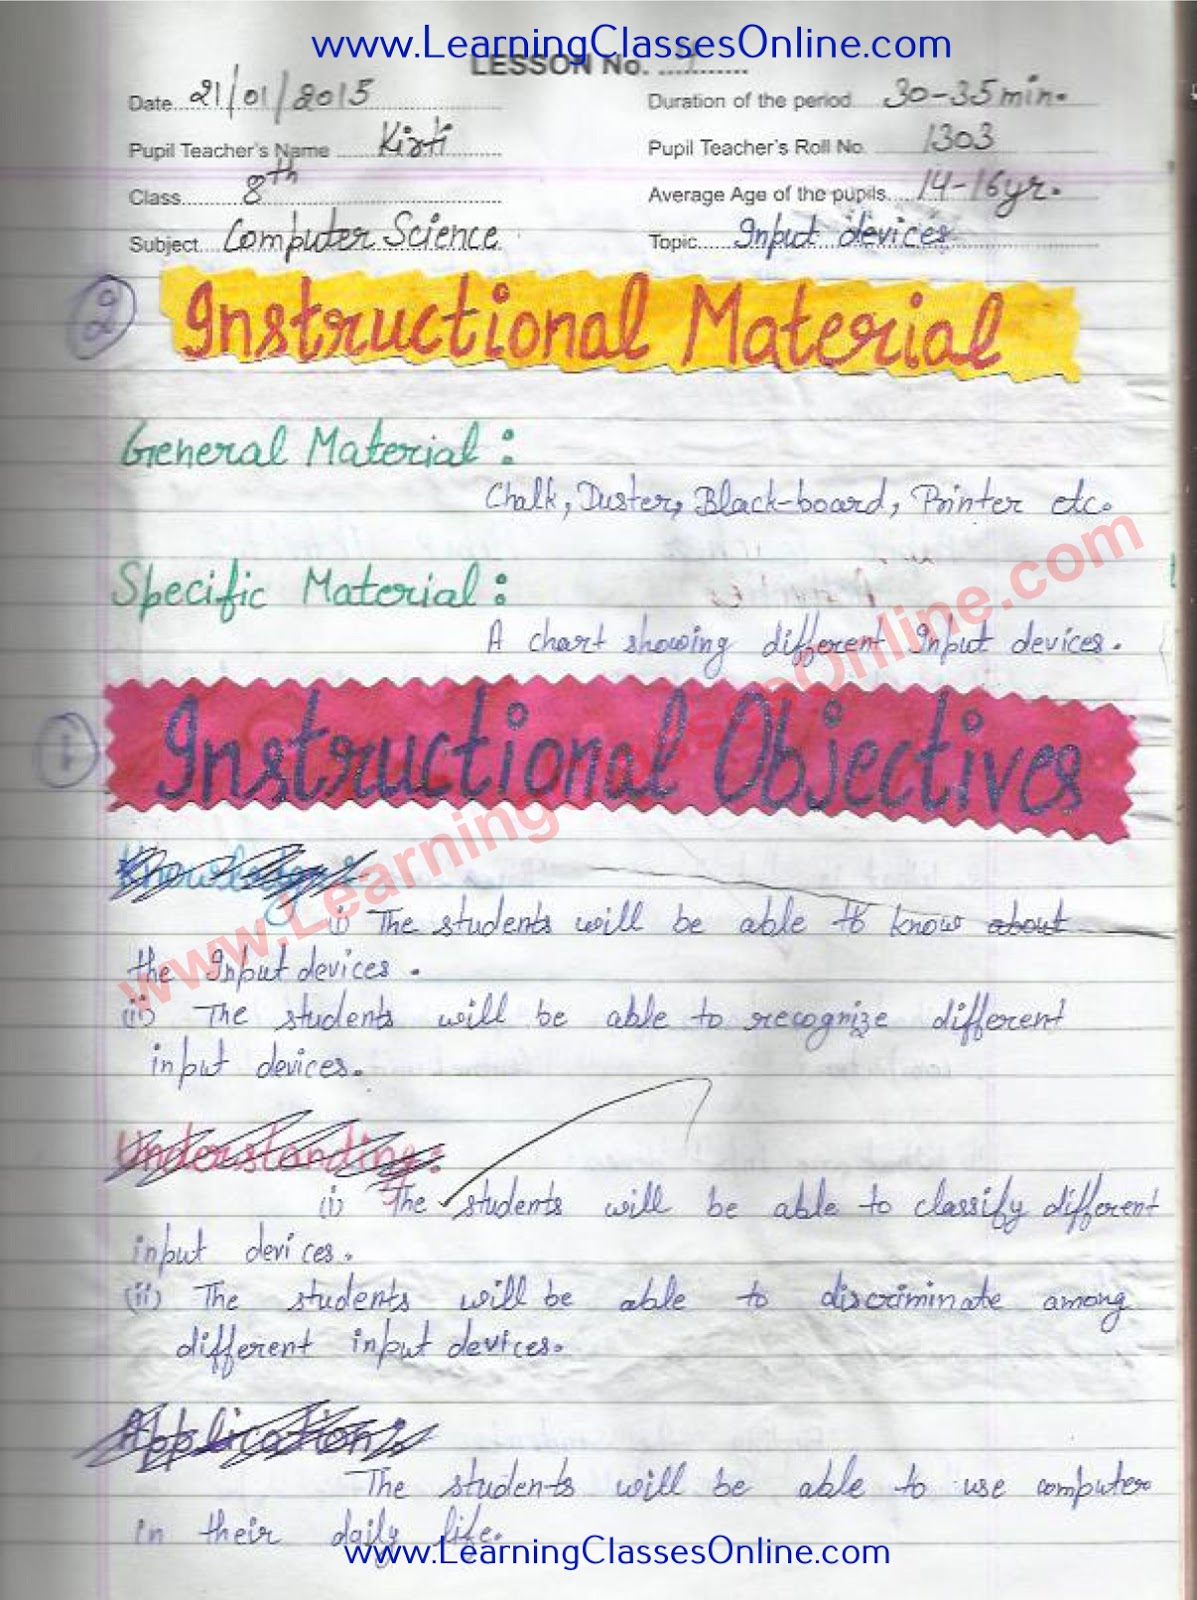 www.LearningClassesOnline.com
LESSON No. ............
Date 21/01/2015 Duration of the period 30-35 min.
Pupil Teacher's Name Kirti Pupil Teacher's Roll No. 1303
Class 8th Average Age of the pupils 14-16yr.
Subject Computer Science Topic Input devices
2 Instructional Material
General Material :
Chalk, Duster, Black-board, Printer etc.
Specific Material :
A chart showing different Input devices.
1 Instructional Objectives
Knowledge :
i) The students will be able to know about
the Input devices .
(ii) The students will be able to recognize different
input devices.
Understanding :
(i) The students will be able to classify different
input devices.
(ii) The students will be able to discriminate among
different input devices.
Application :
The students will be able to use computer
in their daily life.
www.LearningClassesOnline.com
www.LearningClassesOnline.com